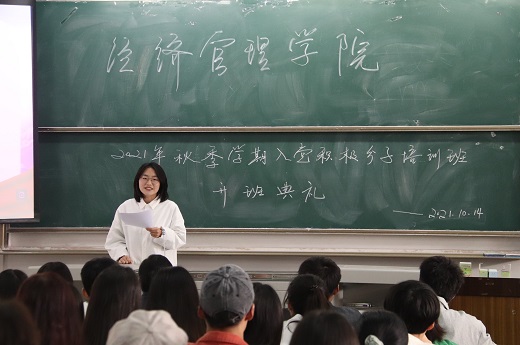 经济管理学院
2021年秋季学期入党积极分子培训班
开班典礼
——2021.10.14